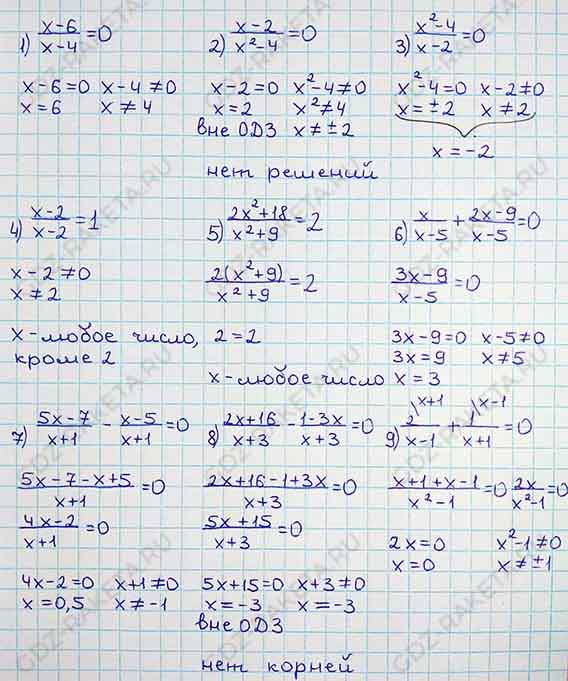 1) (x-6)/(x-4)=0
x-6=0 x-4≠0
x=6 x≠4
2) (x-2)/(x²-4)=0
x-2=0 x²-4≠0
x=2 x²≠4
вне ОДЗ x≠±2
нет решений
3) (x²-4)/(x-2)=0
x²-4=0 x-2≠0
x=±2 x≠2
x=-2
4) (x-2)/(x-2)=1
x-2≠0
x≠2
x-любое число,
кроме 2
5) (2x²+18)/(x²+9)=2
2(x²+9)/(x²+9)=2
2=2
x-любое число
6) x/(x-5)+(2x-9)/(x-5)=0
(3x-9)/(x-5)=0
3x-9=0 x-5≠0
3x=9 x≠5
x=3
7) (5x-7)/(x+1)-(x-5)/(x+1)=0
(5x-7-x+5)/(x+1)=0
(4x-2)/(x+1)=0
4x-2=0 x+1≠0
x=0,5 x≠-1
8) (2x+16)/(x+3)-(1-3x)/(x+3)=0
(2x+16-1+3x)/(x+3)=0
(5x+15)/(x+3)=0
5x+15=0 x+3≠0
x=-3 x=-3
вне ОДЗ
нет корней
9) /(x-1) \x+1 + 1/(x+1) \x-1 =0
(x+1+x-1)/(x²-1)=0 2x/(x²-1)=0
2x=0 x²-1≠0
x=0 x≠±1
GDZ-RAKETA.RU